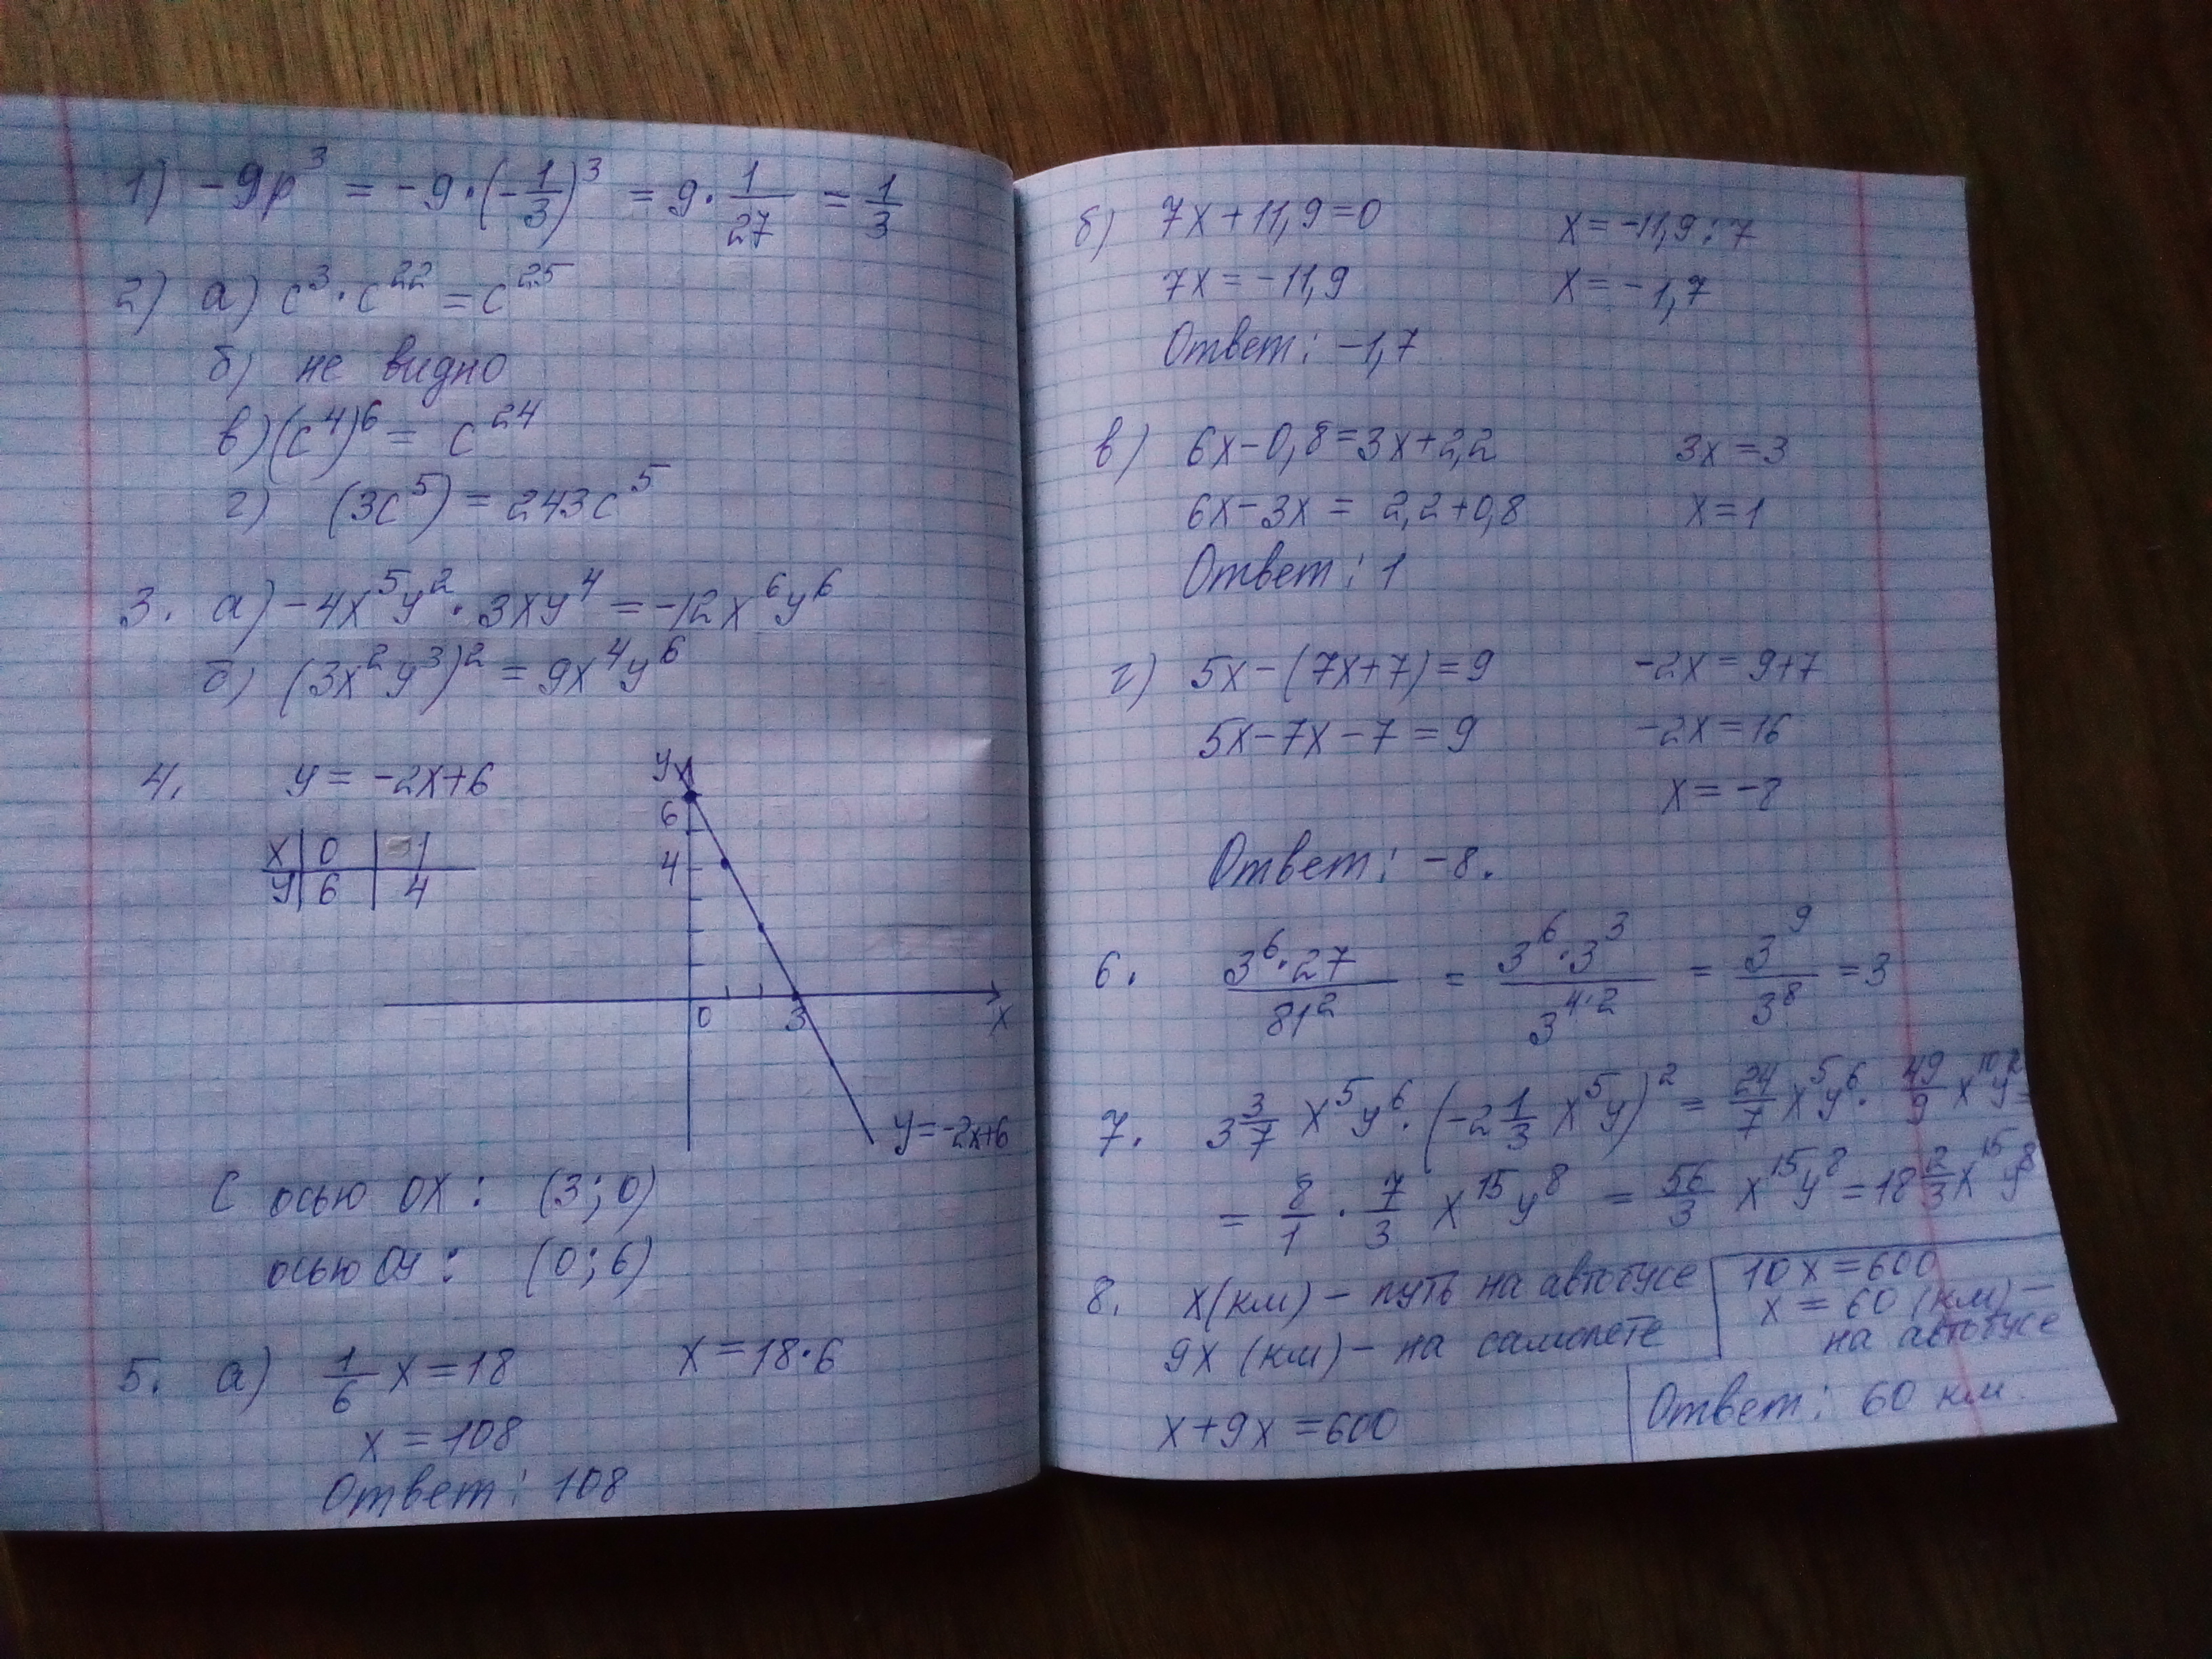 1) -9p³ = -9·(-1/3)³ = 9·1/27 = 1/3
2) а) c³·c²² = c²⁵
б) не видно
в) (c⁴)⁶ = c²⁴
г) (3c⁵) = 243c⁵
3. а) -4x⁵y²·3xy⁴ = -12x⁶y⁶
б) (3x²y³)² = 9x⁴y⁶
4. y = -2x+6
x | 0 | 1
y | 6 | 4
y
6
4
0 3 x
y=-2x+6
С осью OX: (3; 0)
осью OY: (0; 6)
5. а) 1/6 x = 18 x = 18·6
x = 108
Ответ: 108
б) 7x+11,9=0 x = -11,9:7
7x = -11,9 x = -1,7
Ответ: -1,7
в) 6x-0,8=3x+2,2 3x=3
6x-3x = 2,2+0,8 x=1
Ответ: 1
г) 5x-(7x+7)=9 -2x = 9+7
5x-7x-7=9 -2x=16
x = -8
Ответ: -8.
6. 3⁶·27/81² = 3⁶·3³/3⁴·² = 3⁹/3⁸ = 3
7. 3 3/7 x⁵y⁶·(-2 1/3 x⁵y)² = 24/7 x⁵y⁶·49/9 x¹⁰y² =
= 8/1 · 7/3 x¹⁵y⁸ = 56/3 x¹⁵y⁸ = 18 2/3 x¹⁵y⁸
8. x(км) – путь на автобусе
9x (км) – на самолете
x+9x=600
10x=600
x = 60 (км) –
на автобусе
Ответ: 60 км.